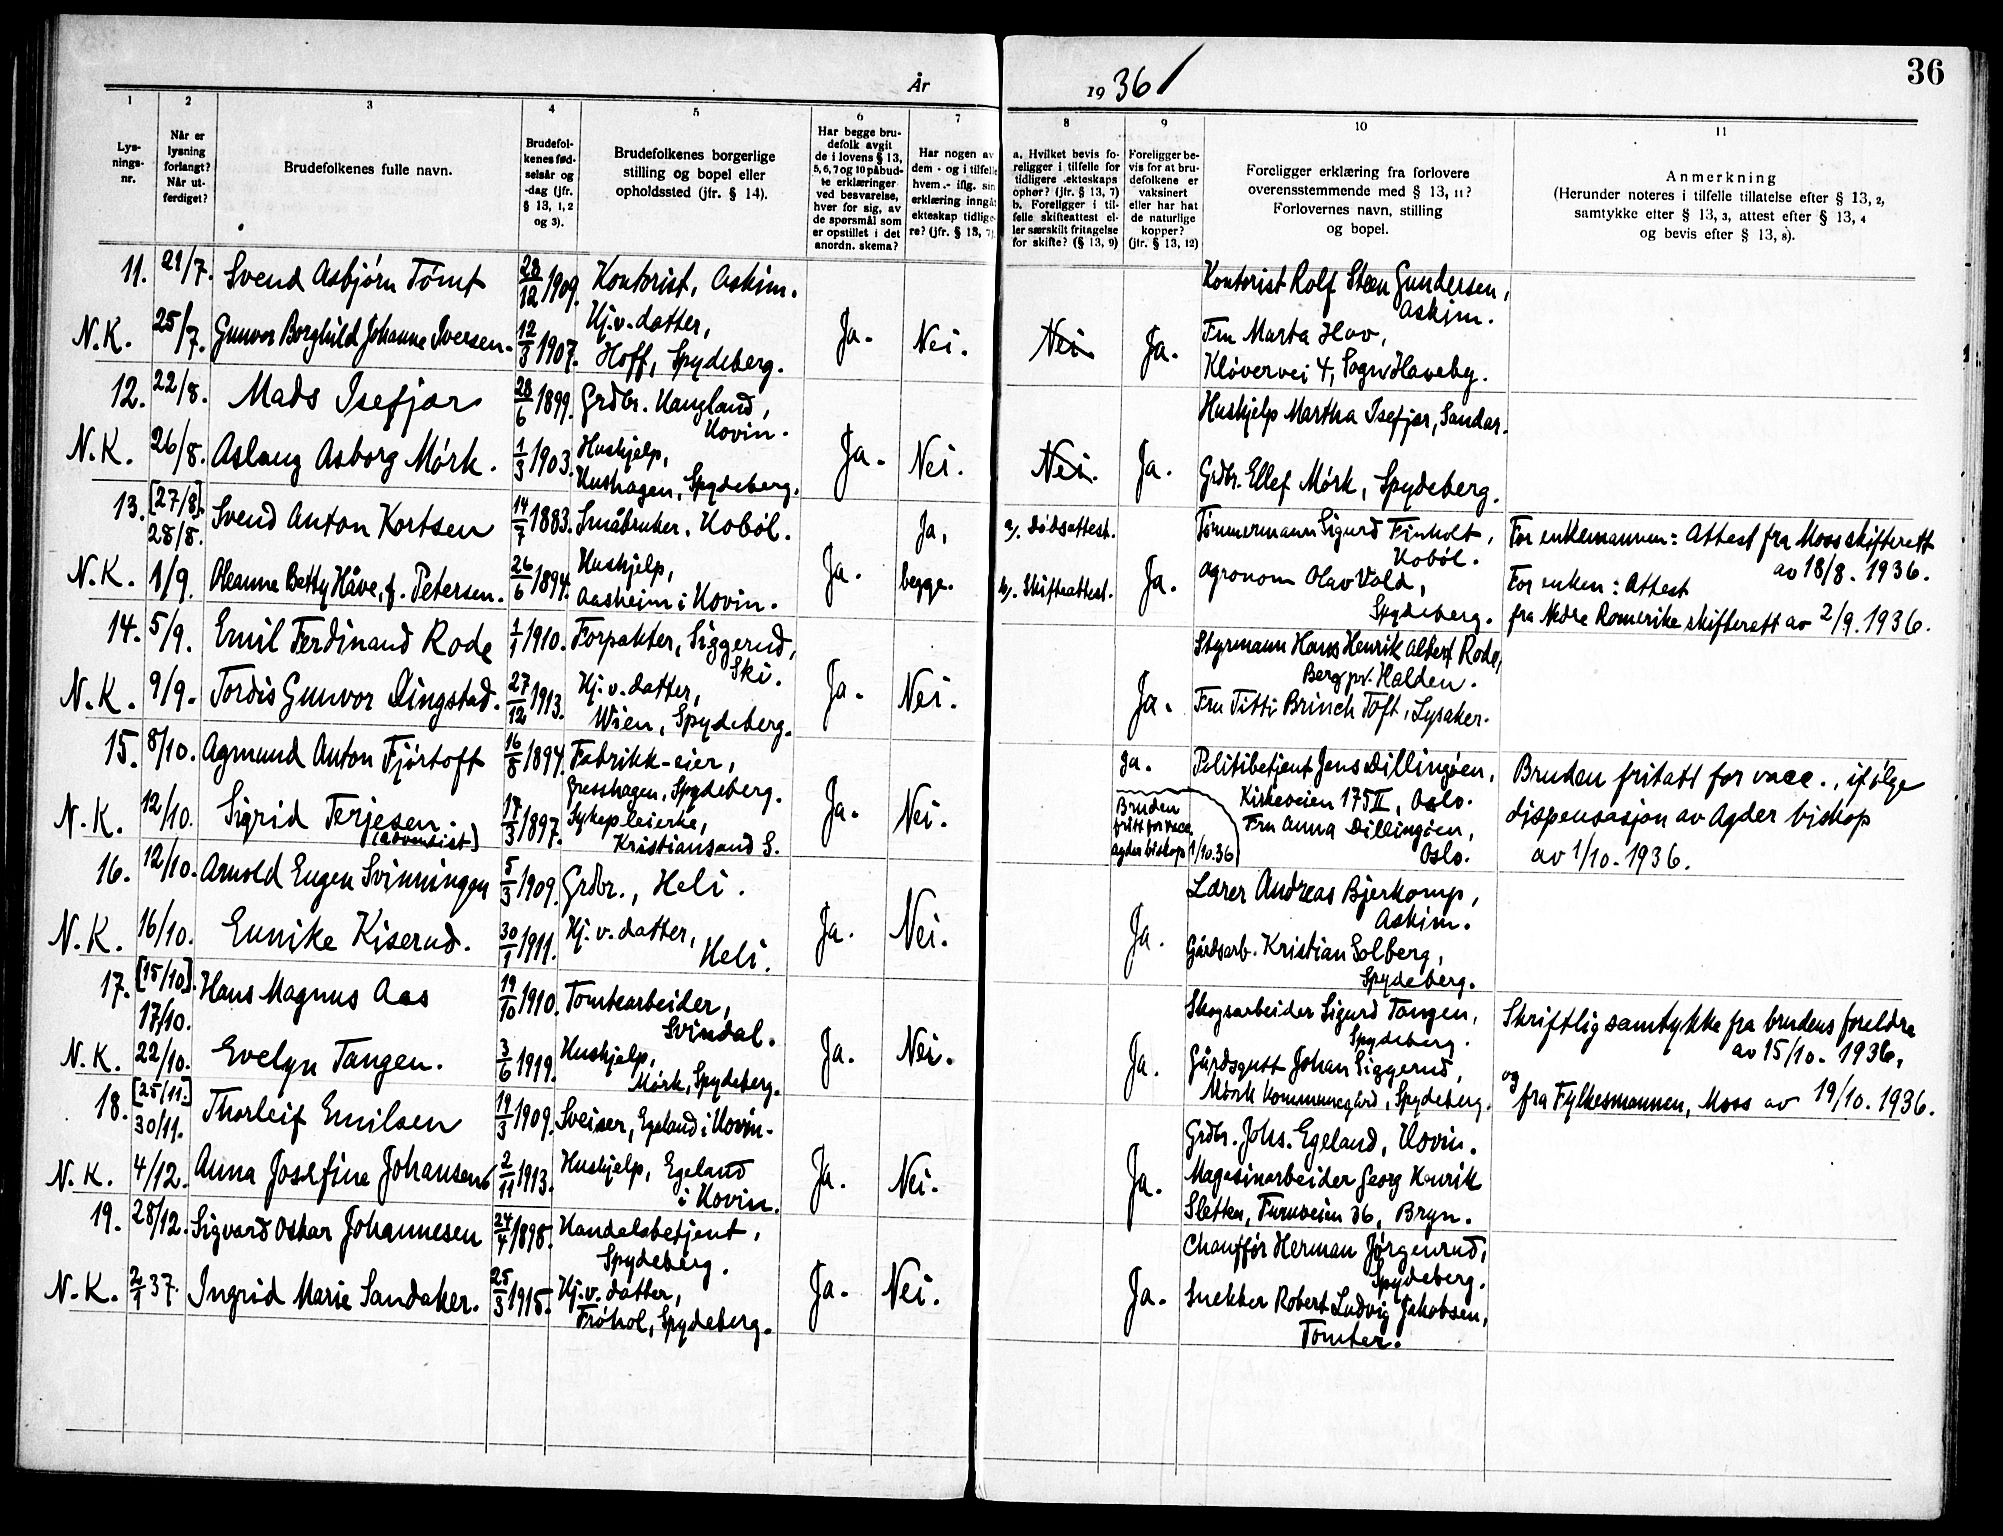 36
År 1936
1 2 3 4 5 6 7 8 9 10 11
Lys-
nings-
nr.
Når er
lysning
forlangt?
Når ut-
ferdiget?
Brudefolkenes fulle navn.
Brudefol-
kenes fød-
selsår og
-dag (jfr.
§ 13, 1, 2
og 3).
Brudefolkenes borgerlige
stilling og bopel eller
opholdssted (jfr. § 14).
Har begge bru-
defolk avgit
de i lovens § 13,
5, 6, 7 og 10 påbud-
te erklæringer
ved besvarelse,
hver for sig, av
de spørsmål som
er opstillet i det
anordn. skema?
Har nogen av
dem - og i tilfelle
hvem.- iflg. sin
erklæring inngå
ekteskap tidlige-
re? (jfr. § 13, 7)
a. Hvilket bevis fo-
religger i tilfelle for
tidligere ekteskaps
opher? (jfr. § 13, 7)
b. Foreligger i til-
felle skifteattest el-
ler særskilt fritagelse
for skifte? (§ 13, 9)
Foreligger be-
vis for at bru-
defolkene er
vaksinert
eller har hat
de naturlige
kopper?
(jfr. § 13, 12)
Foreligger erklæring fra forlovere
overensstemmende med § 13, 11?
Forlovernes navn, stilling
og bopel.
Anmerkning
(Herunder noteres i tilfelle tillatelse efter § 13, 2,
samtykke efter § 13, 3, attest efter § 13, 4
og bevis efter § 13, 8).
11. 21/7. Svend Asbjørn Tømt 28/12 1909. Kontorist, Askim. Kontorist Rolf Steen Gundersen,
Askim.
N.K. 25/7. Gunvor Borghild Johanne Iversen. 12/3 1907. Hj.v. datter,
Hoff, Spydeberg. Ja. Nei. Nei. Ja. Fru Marta Hov,
Kløvervei 4, Sogn Haveby.
12. 22/8. Mads Isefjær 28/6 1899. Grdbr. Haugland,
Hovin. Huskjelp Martha Isefjær, Sandar.
N.K. 26/8. Aslaug Asborg Mørk. 1/3 1903. Huskjelp,
Hushagen, Spydeberg. Ja. Nei. Nei. Ja. Grdbr. Ellef Mørk, Spydeberg.
13. [27/8]. 28/8. Svend Anton Kortsen 14/7 1883. Småbruker. Hobøl. Ja, a). Dødsattest. Tømmermann Sigurd Finholt,
Hobøl. For enkemannen: Attest fra Moss skifterett
av 18/8. 1936.
N.K. 1/9. Oleanne Betty Håve, f. Petersen. 26/6 1894. Huskjelp,
Aasheim i Hovin. Ja. begge. b). Skifteattest. Ja. Agronom Olav Vold,
Spydeberg. For enken: Attest
fra Nedre Romerike skifterett av 2/9. 1936.
14. 5/9. Emil Ferdinand Rode 1/1 1910. Forpakter, Siggerud,
Ski. Styrmann Hans Henrik Albert Rode,
Berg pr. Halden.
N.K. 9/9. Tordis Gunvor Lingstad. 27/12 1913. Hj.v. datter,
Wien, Spydeberg. Ja. Nei. Ja. Fru Titti Brinch Toft, Lysaker.
15. 8/10. Agmund Anton Fjørtoft 16/8 1894. Fabrikk-eier,
Gresshagen, Spydeberg. Ja. Politibetjent Jens Dillingøen,
Kirkeveien 175 II, Oslo. Bruden fritatt for vacc., ifølge
dispensasjon av Agder biskop
av 1/10. 1936.
N.K. 12/10. Sigrid Terjesen.
(adventist) 17/3 1897. Sykepleierke,
Kristiansand S. Ja. Nei. Bruden
fritt for vacc.
Agder biskop 1/10.36 Fru Anna Dillingøen,
Oslo.
16. 12/10. Arnold Eugen Svinningen 5/3 1909. Grdbr., Heli. Lærer Andreas Bjerkomp,
Askim.
N.K. 16/10. Eunike Kiserud. 30/1 1911. Hj.v. datter,
Heli. Ja. Nei. Ja. Gårdsarb. Kristian Solberg,
Spydeberg.
17. [15/10]. 17/10. Hans Magnus Aas 19/10 1910. Tomtearbeider,
Svindal. Skogsarbeider Sigurd Tangen,
Spydeberg. Skriftlig samtykke fra brudens foreldre
av 15/10. 1936,
N.K. 22/10. Evelyn Tangen. 3/6 1919. Huskjelp,
Mørk, Spydeberg. Ja. Nei. Ja. Gårdsgutt Johan Siggerud,
Mørk Kommunegård, Spydeberg. og fra Fylkesmannen, Moss av 19/10. 1936.
18. [25/11.] 30/11. Thorleif Emilsen 19/3 1909. Sveiser, Egeland i Hovin. Grdbr. Johs. Egeland, Hovin.
N.K. 4/12. Anna Josefine Johansen 2/11 1913. Huskjelp, Egeland
i Hovin. Ja. Nei. Ja. Magasinarbeider Georg Henrik
Sletten, Furuveien 36, Bryn.
19. 28/12. Sigvard Oskar Johannesen 24/4 1898. Handelsbetjent,
Spydeberg. Chauffør Herman Jørgenrud,
Spydeberg.
N.K. 2/1 37. Ingrid Marie Sandaker. 25/3 1915. Hj.v. datter,
Frøhol, Spydeberg. Ja. Nei. Ja. Snekker Robert Ludvig Jakobsen,
Tomter.